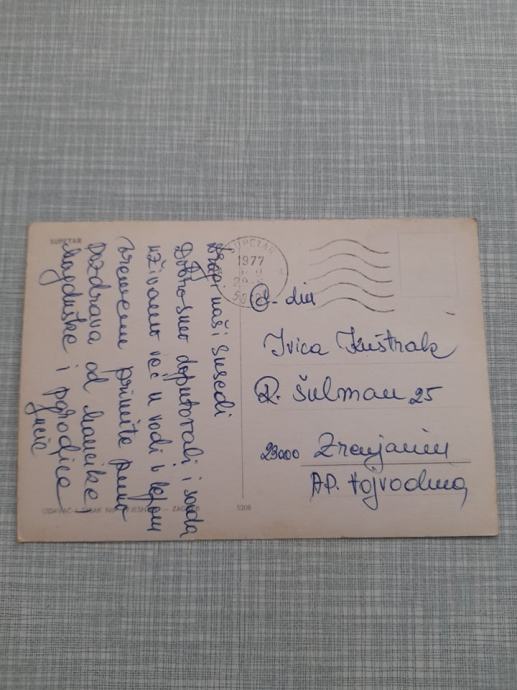 SUPETAR
Dragi naši susedi
Dobro smo doputovali i sada
uživamo već u vodi i lepom
vremenu primite puno
pozdrava od
i porodica
SUPETAR
1977
G-din
Ivica Kuštrak
R. Šulman 25
23000 Zrenjanin
AP. Vojvodina
5208